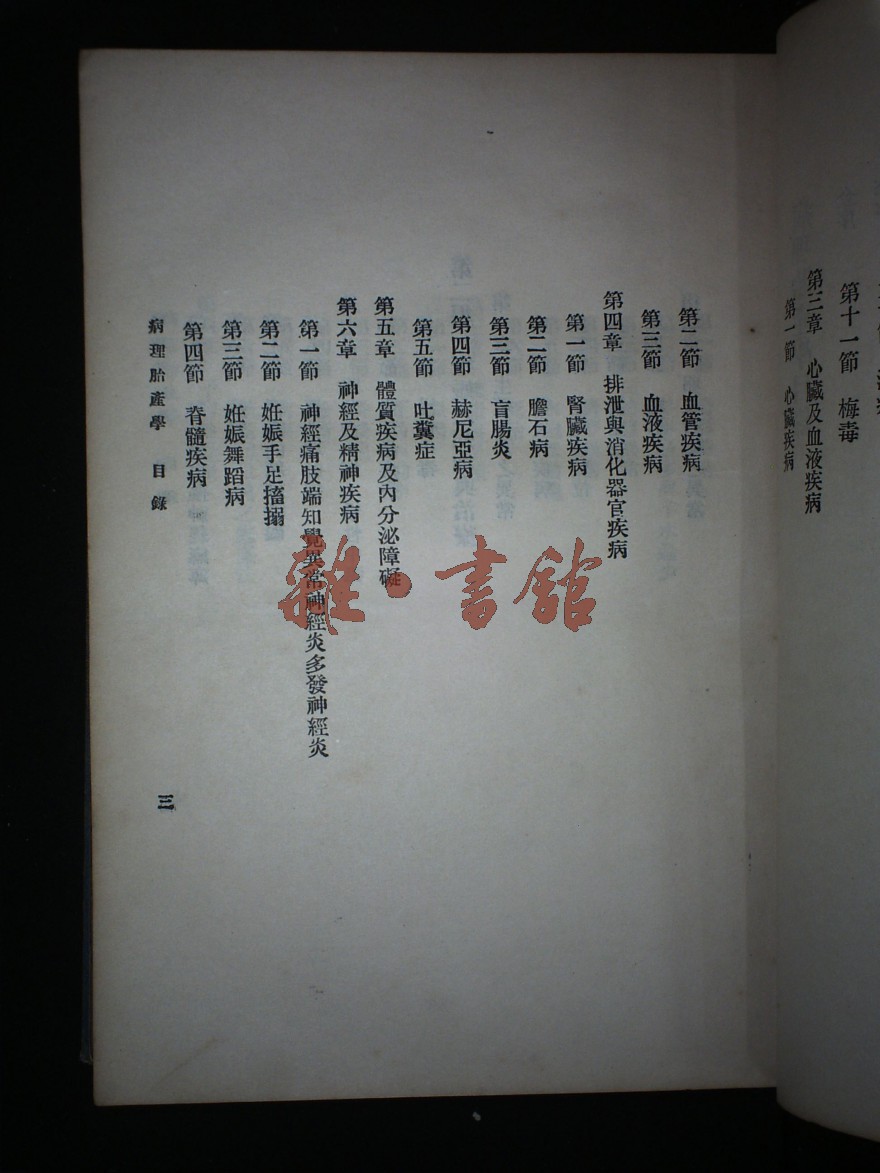 第十一節　梅毒
第三章　心臟及血液疾病
第一節　心臟疾病
第二節　血管疾病
第三節　血液疾病
第四章　排泄與消化器官疾病
第一節　腎臟疾病
第二節　膽石病
第三節　盲腸炎
第四節　赫尼亞病
第五節　吐糞症
第五章　體質疾病及內分泌障礙
第六章　神經及精神疾病
第一節　神經痛肢端知覺異常神經炎多發神經炎
第二節　妊娠手足搐搦
第三節　妊娠舞蹈病
第四節　脊髓疾病
病理胎產學　目錄
三
雜·書館